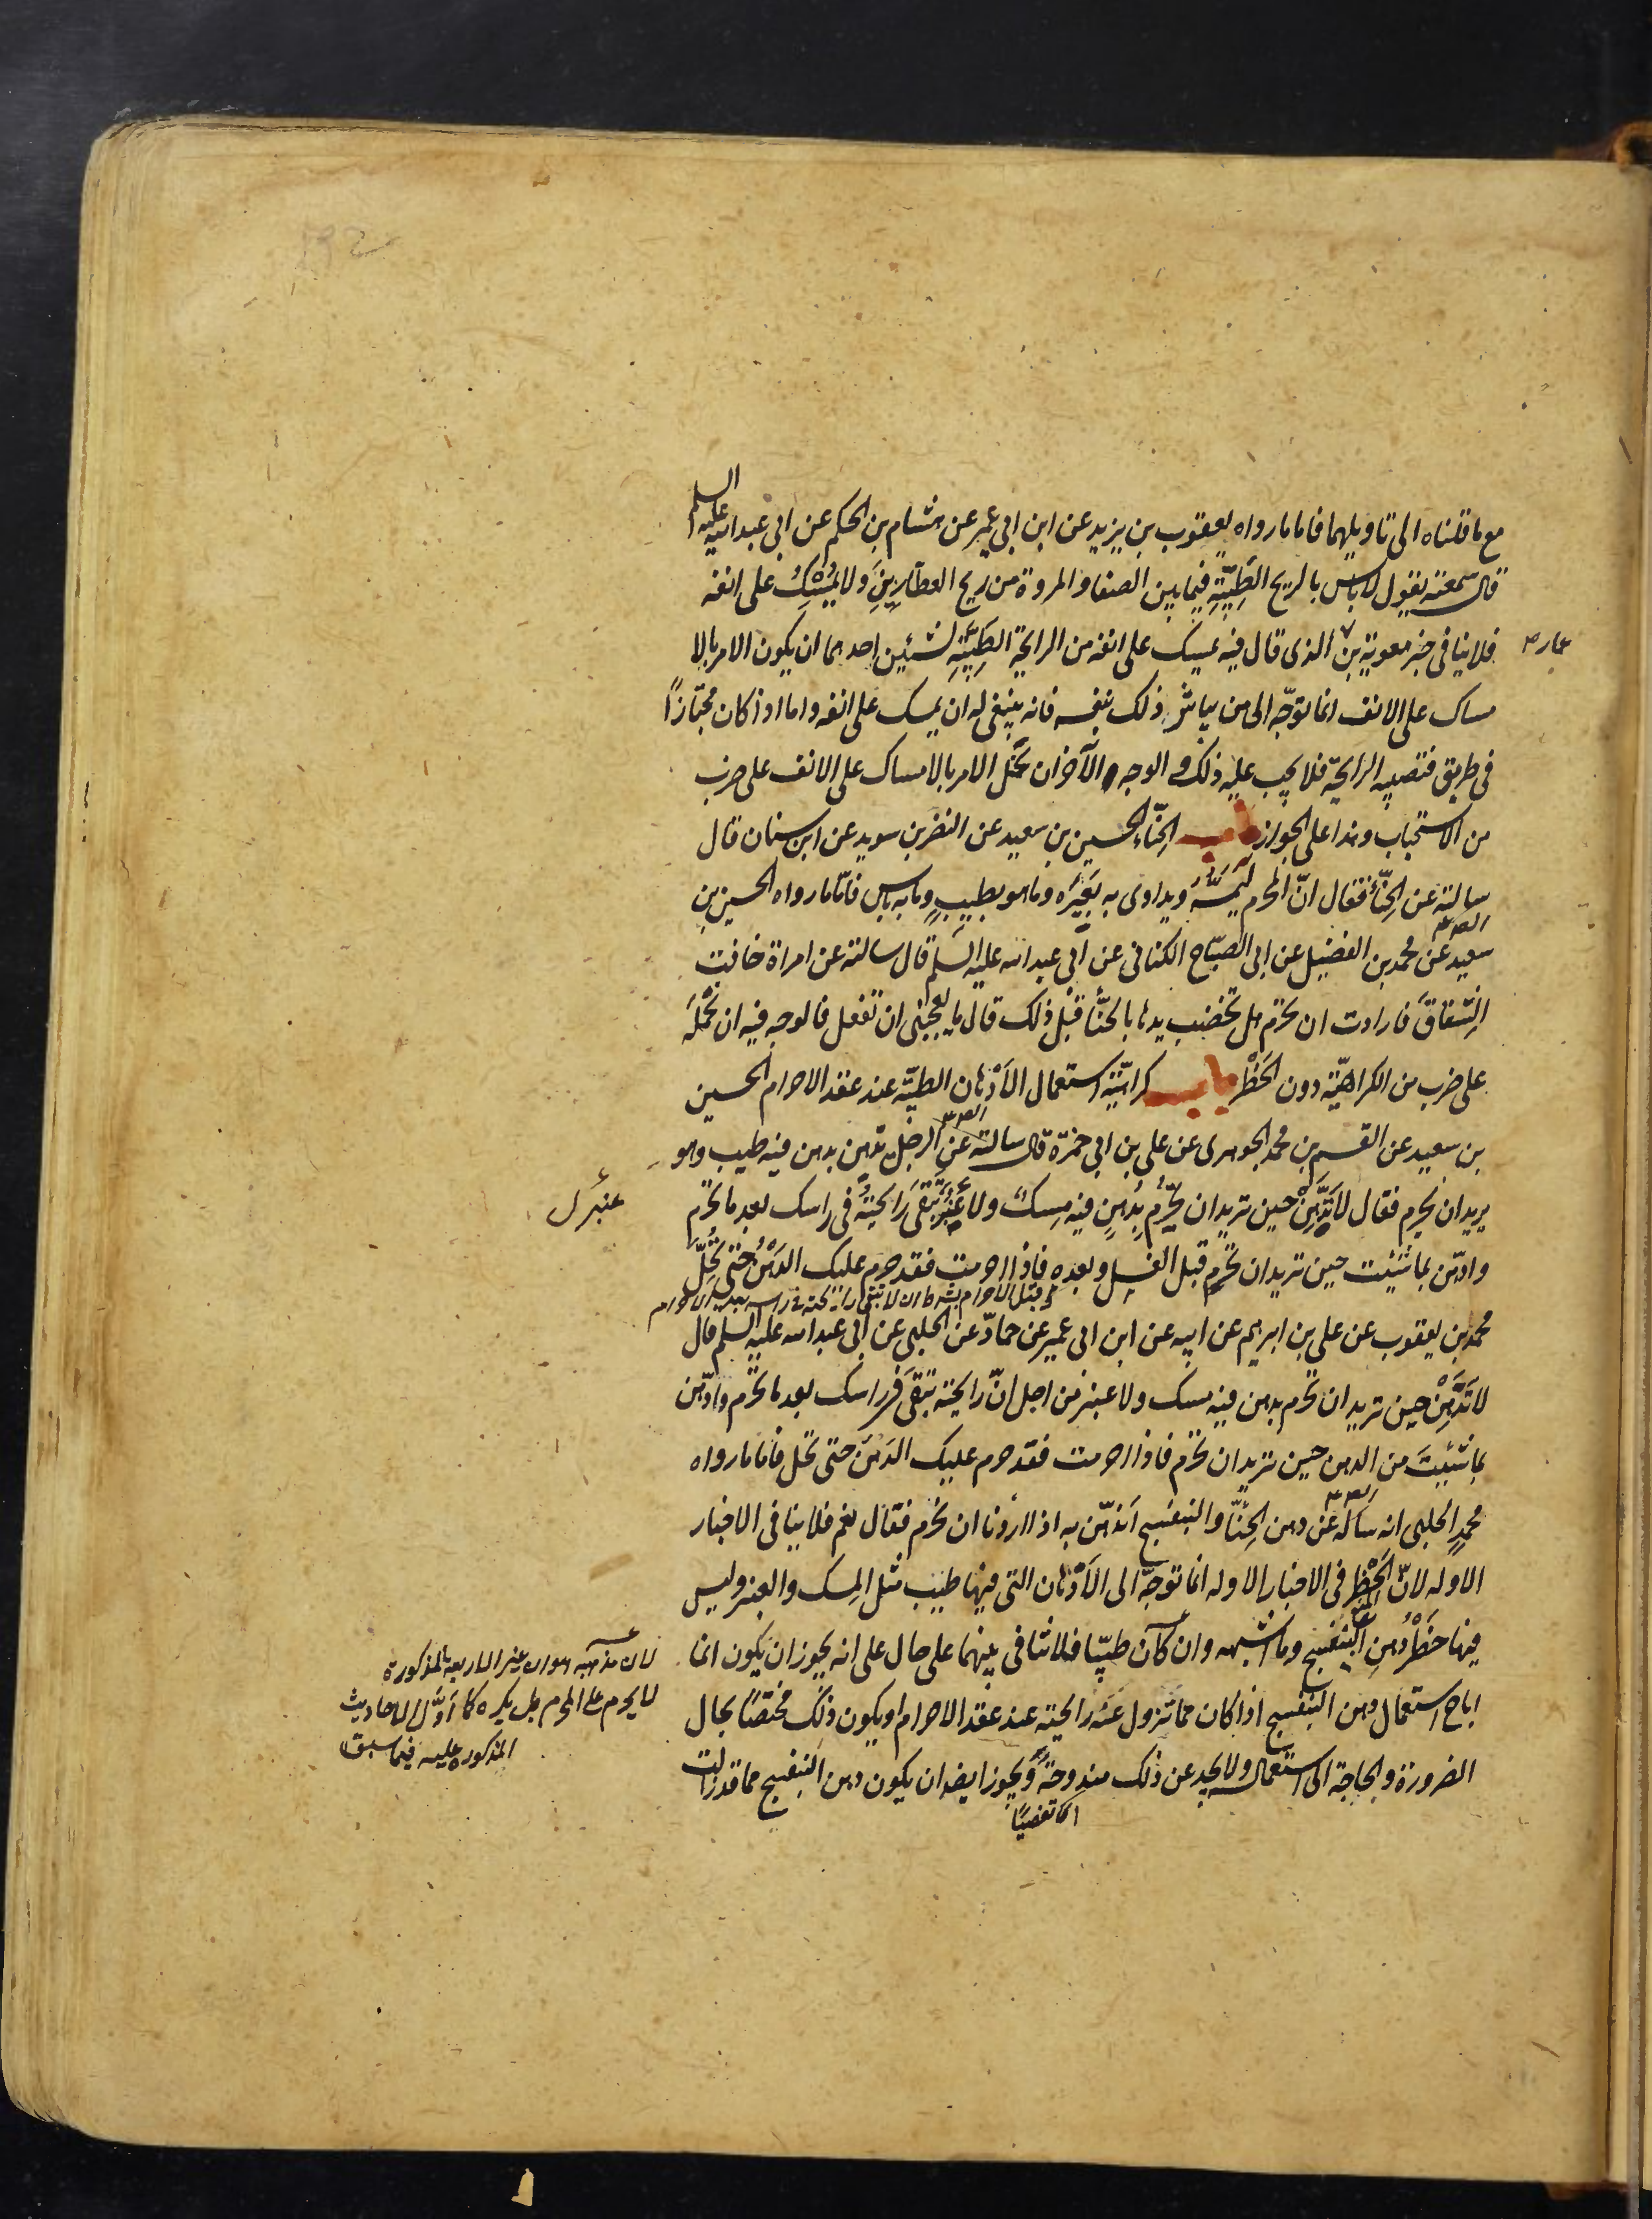 مع ما قلناه الى تاويلهما فاما ما رواه يعقوب بن يزيد عن ابن ابي عمير عن هشام بن الحكم عن ابي عبد الله عليه السلم
قال سمعته يقول لا باس بالريح الطَيِّبَةِ فيما بين الصفا والمروة من ريح العطّارِينَ ولا يُمْسِكُ على انفه
فلا ينافى خبر معوية بن الذى قال فيه يمسك على انفه من الرايحة الطَيِّبَةِ لشيئين احدهما ان يكون الامر بالا
عمار
مساك على الانف انما توجّه الى من يباشر ذلك بنفسه فانه ينبغى له ان يمسك على انفه واما اذا كان مجتازًا
فى طريق فتصيبه الرايحة فلا يجب عليه ذلك و الوجه الآخر ان نحمل الامر بالامساك على الانف على ضرب
من الاستحباب وهذا على الجواز باب الحِنّاء الحسين بن سعيد عن النضر بن سويد عن ابن سنان قال
سالته عن الحِنّاء فقال انّ المحرم لَيَمَسُّهُ ويداوى به بَعِيرَه وما هو بطيبٍ وما به باس فامّا ما رواه الحسين بن
سعيد عن محمد بن الفضيل عن ابى الصبّاح الكنانى عن ابى عبد الله عليه السلم قال سالته عن امراة خافت
الشّقاقَ فارادت ان تحرم هل تخضب يدها بالحنّاء قبْل ذلك قال ما يعجبنى ان تفعل فالوجه فيه ان نَحْمِلَهُ
على ضرب من الكراهيّة دون الحَظْر باب كراهيّة استعمال الاَدْهان الطيّبة عند عقد الاحرام الحسين
بن سعيد عن القسم بن محمد الجوهرى عن على بن ابى حمزة قال سالته عن الرجل يدّهن بدهن فيه طيب وهو
يريد ان يحرم فقال لا تَدَّهِنْ حين تريد ان تُحْرِمَ بدُهنٍ فيه مِسكٌ ولا عَنْبَرٌ تَبْقَى رَايحَتُهُ فى راسك بعد ما تحرم
عنبر ل
وادّهن بما شئت حين تريد ان تحرم قبل الغسل وبعده فاذا احرمت فقد حرم عليك الدهْنُ حتى تُحِلَّ
قبل الاحرام بشرط ان لا تبقى رايحته فى راسه بعد الاحرام
محمد بن يعقوب عن على بن ابرهيم عن ابيه عن ابن ابى عمير عن حمّاد عن الحلبى عن ابى عبد الله عليه السلم قال
لا تَدَّهِنْ حين تريد ان تحرم بدهن فيه مسك ولا عنبر من اجل انّ رايحته تبْقَى فى راسك بعد ما تحرم وادّهن
بما شئْتَ من الدهن حين تريد ان تحرم فاذا احرمت فقد حرم عليك الدهْنُ حتى تحل فاما ما رواه
محمد الحلبى انه ساله عن دهن الحِنّاء والبنفسج اَنَدّهن به اذا اردنا ان نحرم فقال نعم فلا ينافى الاخبار
الاوله لانّ الحَظْر فى الاخبار الاوله انما توجّه الى الاَدْهان التى فيها طيب مثل المِسك والعنبر وليس
فيها حَظْرُ دهنِ البنفسج وما اشبهه وان كان طيّبا فلا تنافى بينهما على حال على انه يجوز ان يكون انما
لان مذهبه هو ان غير الاربعة المذكورة
اباح استعمال دهن البنفسج اذا كان مما تزول عنه رايحته عند عقد الاحرام او يكون ذلك مختصًّا بحال
لا يحرم على المحرم بل يكره كما اوّل الاحاديث
المذكورة عليه فيما سبق
الضرورة والحاجة الى استعماله ولا يجد عن ذلك مندوحةً ويجوز ايضا ان يكون دهن البنفسج مما قد زالت